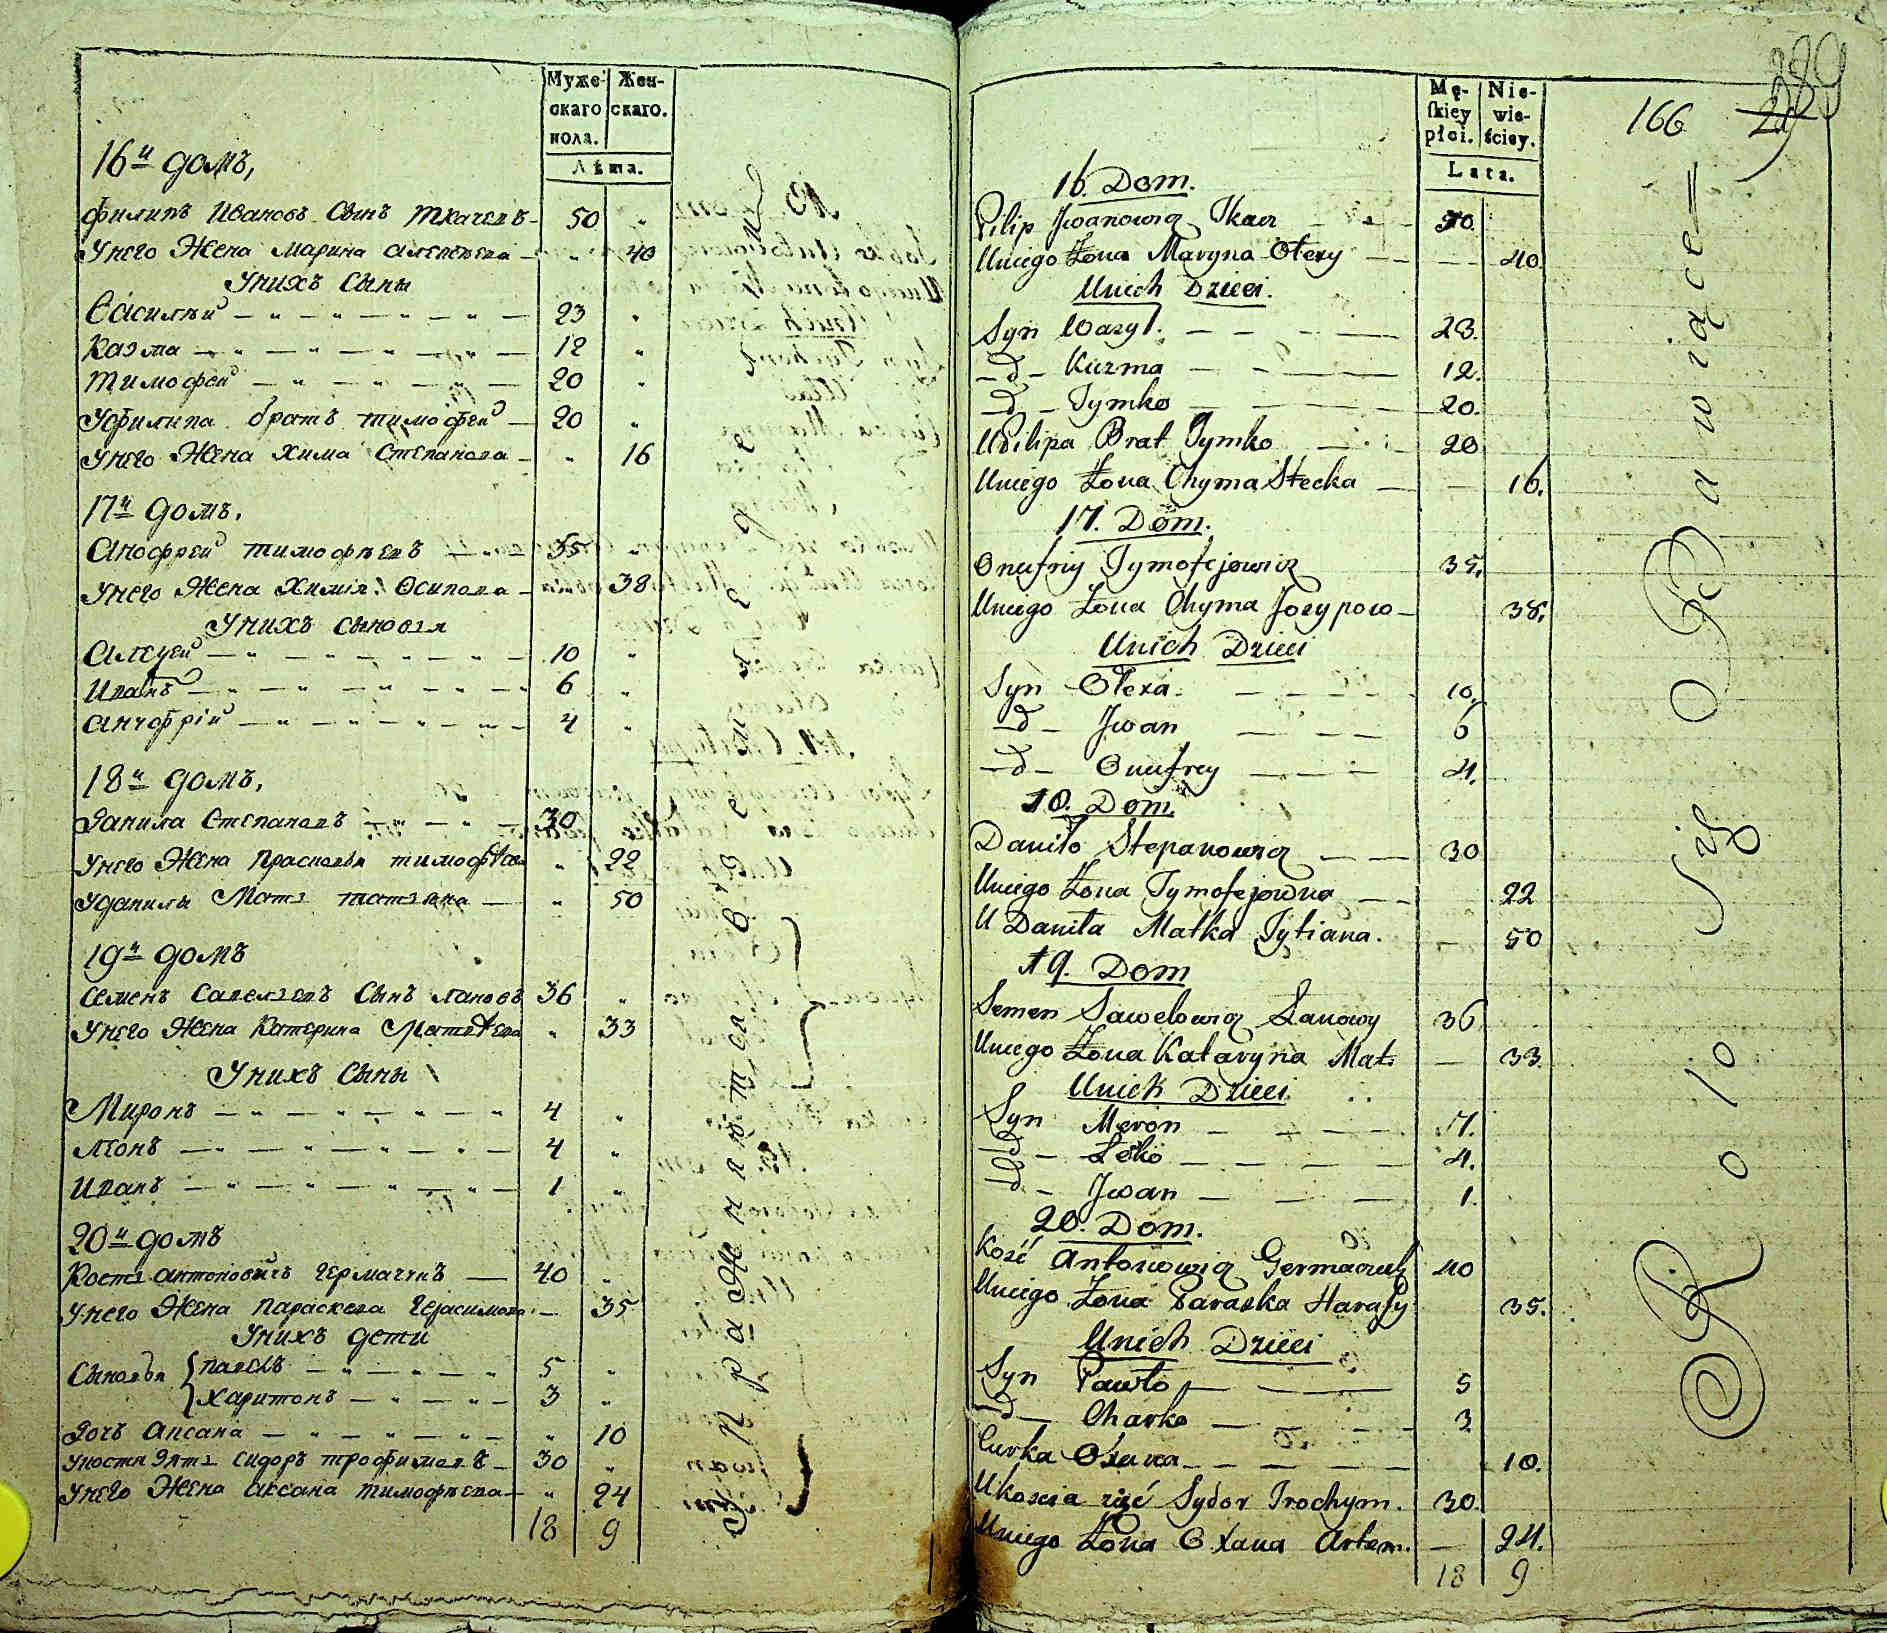 Муже-
скаго
пола.
Жен-
скаго.
Лѣта.
16й домъ,
Филипъ Ивановъ Сынъ Ткачевъ 50 "
Унего Жена Марина Алексѣева " 40
Унихъ Сыны
Василій 23 "
Казма 12 "
Тимофей 20 "
Уфилипа братъ тимофей 20 "
Унего Жена Хима Степанова " 16
17й домъ.
Анофрей тимофѣевъ 35 "
Унего Жена Химія Осипова 38
Унихъ Сыновья
Алеѯей 10 "
Иванъ 6 "
Анчофрій 4 "
18й домъ.
Данила Степановъ 30
Унего Жена Прасковья тимофѣева " 22
Уданилы Мать татьяна " 50
19й домъ
Семенъ Савельевъ Сынъ лановъ 36 "
Унего Жена Катерина Матвѣева " 33
Унихъ Сыны
Миронъ 4 "
лѣонъ 4 "
Иванъ 1 "
20й домъ
Кость антоновичъ Гермачукъ 40 "
Унего Жена Параскева Герасимова 35
Унихъ дети
Сыновья павелъ 5 "
харитонъ 3 "
Дочь Аксана " 10
Укостя Зять Сидоръ трофимовъ 30 "
Унего Жена Аксана тимофѣева " 24
18 9
166
289
Mę-
skiey
płci.
Nie-
wie-
ściey.
Lata.
16. Dom.
Pilip Jwanowicz Tkacz 50.
Uniego Żona Maryna Olexy 40.
Unich Dzieci.
Syn Wasyl. 23.
-d- Kuzma 12.
-d- Tymko 20.
UPilipa Brat Tymko 20
Uniego Żona Chyma Stecka 16.
17. Dom.
Onufriy Tymofejowicz 35.
Uniego Żona Chyma Jozypow 38.
Unich Dzieci
Syn Olexa. 10.
-d- Jwan 6
-d- Onufrey 4.
18. Dom.
Daniło Stepanowicz 30
Uniego Żona Tymofejowna 22
U Daniła Matka Tytiana. 50
19. Dom
Semen Sawelowicz Łanowy 36
Uniego Żona Kataryna Mat. 33.
Unich Dzieci
Syn Meron 4.
-d- Lesko 4.
-d- Jwan 1.
20. Dom.
Kość Antonowicz Germaczuk 40
Uniego Żona Paraska Harasy 35.
Unich Dzieci
Syn Pawło 5
-d- Charko 3
Curka Oxana 10.
Ukoscia zięć Sydor Trochym. 30.
Uniego Żona Oxana Artem. 24.
18 9